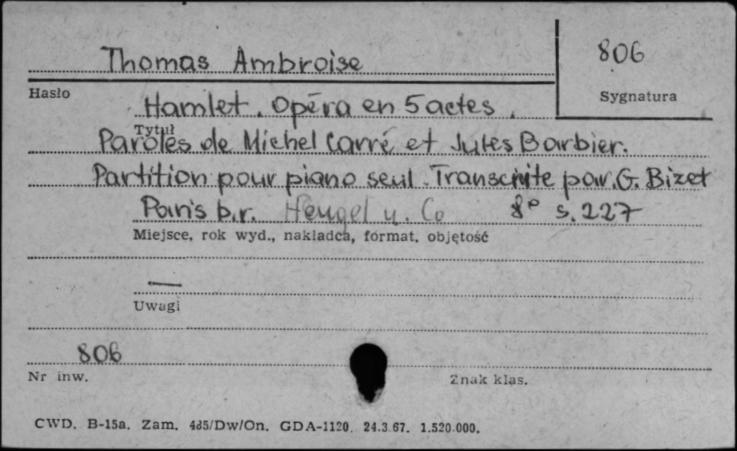 Thomas Ambroise
806
Hasło
Sygnatura
Hamlet. Opéra en 5 actes.
Tytuł
Paroles de Michel Carré et Jules Barbier.
Partition pour piano seul. Transcrite par G. Bizet
Paris b.r. Heugel u. Co 8° s. 227
Miejsce, rok wyd., nakładca, format, objętość
—
Uwagi
806
Nr inw.
Znak klas.
CWD. B-15a. Zam. 485/Dw/On. GDA-1120. 24.3.67. 1.520.000.